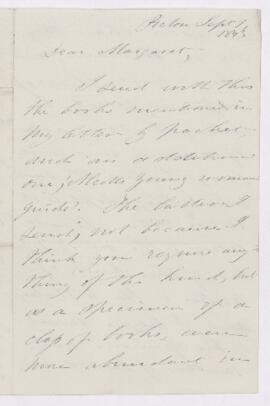 Acton Sept 1
1845
Dear Margaret,
I send with this
the books mentioned in
my letter by packet,
and an additional
one, Alcotts Young woman's
guide. The latter I
send, not because I
think you require any
thing of the kind, but
as a specimen of a
class of books, even
more abundant in